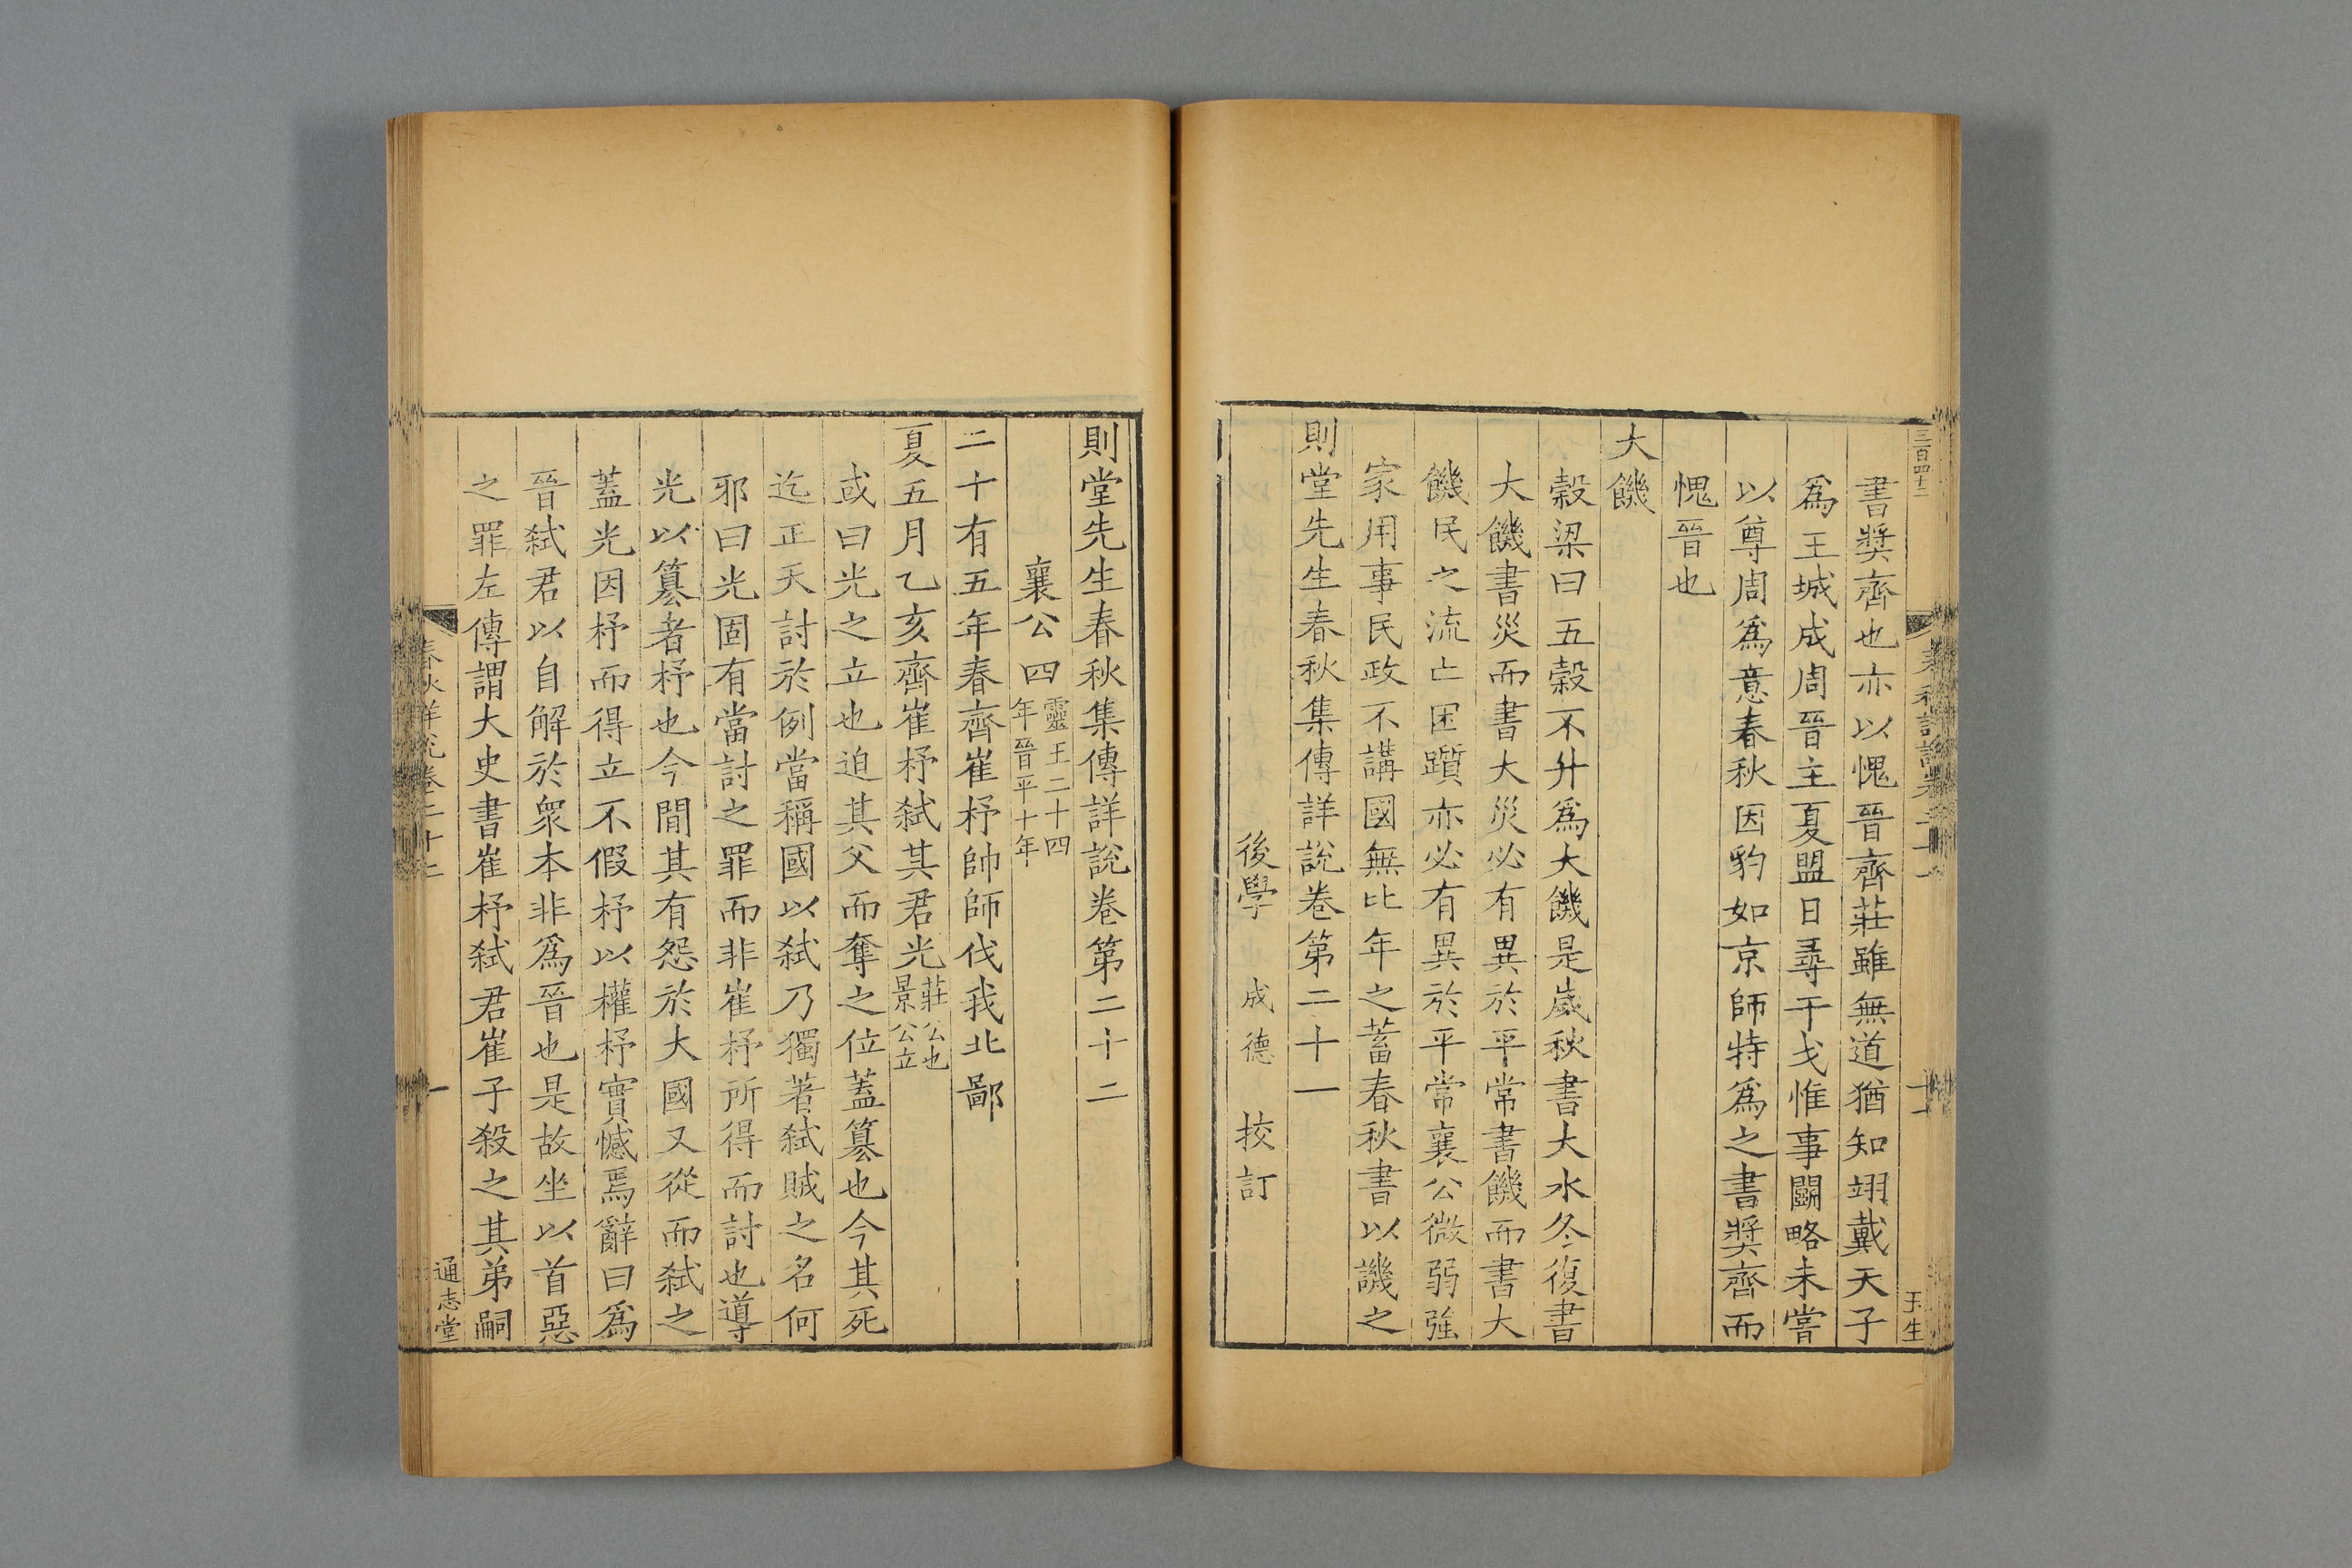 三百四十二
書奬齊也亦以愧晉齊莊雖無道猶知翊戴天子
爲王城成周晉主夏盟日尋干戈惟事鬭略未嘗
以尊周爲意春秋因豹如京師特爲之書奬齊而
愧晉也
大饑
穀梁曰五穀不升爲大饑是歲秋書大水冬復書
大饑書災而書大災必有異於平常書饑而書大
饑民之流亡困躓亦必有異於平常襄公微弱強
家用事民政不講國無比年之蓄春秋書以譏之
則堂先生春秋集傳詳說卷第二十一
後學 成德 挍訂
則堂先生春秋集傳詳說卷第二十二
襄公四 靈王二十四年晉平十年
二十有五年春齊崔杼帥師伐我北鄙
夏五月乙亥齊崔杼弑其君光 莊公也景公立
或曰光之立也迫其父而奪之位蓋篡也今其死
迄正天討於例當稱國以弑乃獨著弑賊之名何
邪曰光固有當討之罪而非崔杼所得而討也導
光以篡者杼也今閒其有怨於大國又從而弑之
蓋光因杼而得立不假杼以權杼實憾焉辭曰爲
晉弑君以自解於衆本非爲晉也是故坐以首惡
之罪左傳謂大史書崔杼弑君崔子殺之其弟嗣
春秋詳說卷二十二
一
通志堂